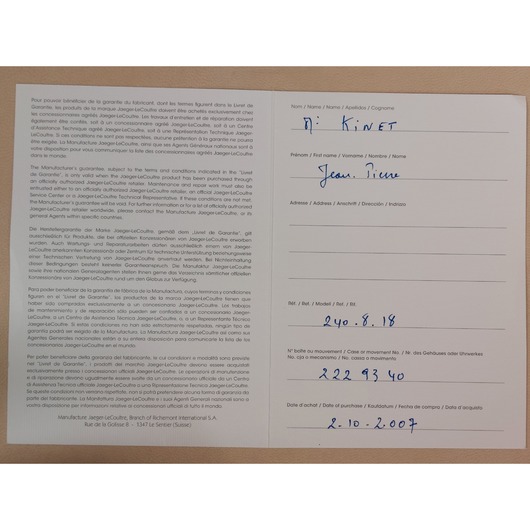 Pour pouvoir bénéficier de la garantie du fabricant, dont les termes figurent dans le Livret de
Garantie, les produits de la marque Jaeger-LeCoultre doivent être achetés exclusivement chez
les concessionnaires agréés Jaeger-LeCoultre. Les travaux d'entretien et de réparation doivent
également être confiés, soit à un concessionnaire agréé Jaeger-LeCoultre, soit à un Centre
d'Assistance Technique agréé Jaeger-LeCoultre, soit à une Représentation Technique Jaeger-
LeCoultre. Si ces conditions ne sont pas respectées, aucune prétention à la garantie ne pourra
être exigée. La Manufacture Jaeger-LeCoultre, ainsi que ses Agents Généraux nationaux sont à
votre disposition pour vous communiquer la liste des concessionnaires agréés Jaeger-LeCoultre
dans le monde.
The Manufacturer's guarantee, subject to the terms and conditions indicated in the "Livret
de Garantie", is only valid when the Jaeger-LeCoultre product has been purchased through
an officially authorized Jaeger-LeCoultre retailer. Maintenance and repair work must also be
entrusted either to an officially authorized Jaeger-LeCoultre retailer, an official Jaeger-LeCoultre
Service Center or a Jaeger-LeCoultre Technical Representative. If these conditions are not met,
the Manufacturer's guarantee will be void. For further information or for a list of officially authorized
Jaeger-LeCoultre retailer worldwide, please contact the Manufacture Jaeger-LeCoultre, or its
general Agents within specific countries.
Die Herstellergarantie der Marke Jaeger-LeCoultre, gemäß dem „Livret de Garantie", gilt
ausschließlich für Produkte, die bei offiziellen Konzessionären von Jaeger-LeCoultre erworben
wurden. Auch Wartungs- und Reparaturarbeiten dürfen ausschließlich einem von Jaeger-
LeCoultre anerkannten Konzessionär oder Zentrum für technische Unterstützung beziehungsweise
einer Technischen Vertretung von Jaeger-LeCoultre anvertraut werden. Bei Nichteinhaltung
dieser Bedingungen besteht keinerlei Garantieanspruch. Die Manufaktur Jaeger-LeCoultre
sowie ihre nationalen Generalagenten stellen Ihnen gerne das Verzeichnis sämtlicher offiziellen
Konzessionäre von Jaeger-LeCoultre rund um den Globus zur Verfügung.
Para poder beneficiar de la garantía de fábrica de la Manufactura, cuyos términos y condiciones
figuran en el "Livret de Garantie", los productos de la marca Jaeger-LeCoultre tienen que
haber sido comprados exclusivamente a un concesionario Jaeger-LeCoultre. Los trabajos
de mantenimiento y de reparación sólo pueden ser confiados a un concesionario Jaeger-
LeCoultre, a un Centro de Asistencia Técnica Jaeger-LeCoultre, o, a un Representante Técnico
Jaeger-LeCoultre. Si estas condiciones no han sido estrictamente respetadas, ningún tipo de
garantía podrá ser exigida de la Manufactura. La Manufactura Jaeger-LeCoultre así como sus
Agentes Generales nacionales están a su entera disposición para comunicarle la lista de los
concesionarios Jaeger-LeCoultre en el mundo.
Per poter beneficiare della garanzia del fabbricante, le cui condizioni e modalità sono previste
nel "Livret de Garantie", i prodotti del marchio Jaeger-LeCoultre devono essere acquistati
esclusivamente presso i concessionari ufficiali Jaeger-LeCoultre. Le operazioni di manutenzione
e di riparazione devono ugualmente essere svolte da un concessionario ufficiale da un Centro
di Assistenza Tecnica ufficiale Jaeger-LeCoultre o una Rappresentazione Tecnica Jaeger-LeCoultre.
Se queste condizioni non saranno rispettate, non si potrà pretendere alcuna forma di garanzia da
parte del fabbricante. La Manifattura Jaeger-LeCoultre e i suoi Agenti Generali nazionali sono a
vostra disposizione per informazioni relative ai concessionari ufficiali di tutto il mondo.
Manufacture Jaeger-LeCoultre, Branch of Richemont International S.A.
Rue de la Golisse 8 - 1347 Le Sentier (Suisse)
Nom / Name / Name / Apellidos / Cognome
Mr KINET
Prénom / First name / Vorname / Nombre / Nome
Jean. Pierre
Adresse / Address / Anschrift / Dirección / Indirizzo
Réf. / Ref. / Modell / Ref. / Rif.
240.8.18
N° boîte ou mouvement / Case or movement No. / Nr. des Gehäuses oder Uhrwerkes
No. caja o mecanismo / No. cassa o movimento
222 93 40
Date d'achat / Date of purchase / Kaufdatum / Fecha de compra / Data d'acquisto
2.10.2.007